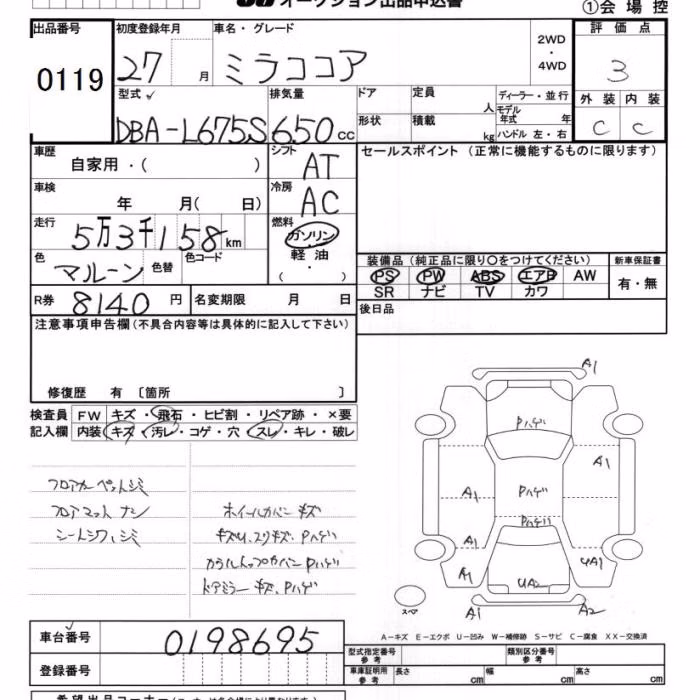 オークション出品申込書
①会場控
出品番号 初度登録年月 車名・グレード 評価点
0119 27 月 ミラココア 2WD・4WD 3
型式 排気量 ドア 定員 人 ディーラー・並行 外装 内装
DBA-L675S 650 cc 形状 積載 kg モデル年式 年 ハンドル 左・右 C C
車歴 シフト セールスポイント (正常に機能するものに限ります)
自家用・( ) AT
車検 冷房
年 月( 日) AC
走行 燃料
5万3千158km ガソリン
色 色替 色コード 軽油 装備品 (純正品に限り○をつけてください) 新車保証書
マルーン ・( ) PS PW ABS エアB AW 有・無
R券 8140円 名変期限 月 日 SR ナビ TV カワ
注意事項申告欄(不具合内容等は具体的に記入して下さい) 後日品
修復歴 有 〔箇所 〕
検査員 FW キズ・飛石・ヒビ割・リペア跡・×要
記入欄 内装 キズ・汚レ・コゲ・穴・スレ・キレ・破レ
フロアカーペットシミ
フロアマットナシ
シートシワ、シミ
ホイールカバーキズ
キズU、スリキズ、Pハゲ
ドアミラーキズ、Pハゲ
A1
Pハゲ
A1
A1 Pハゲ
Pハゲ
A1
A1 UA1
UA2
スペア A1 A2
A-キズ E-エクボ U-凹み W-補修跡 S-サビ C-腐食 XX-交換済
車台番号 0198695
登録番号
型式指定番号 参考 類別区分番号 参考
車庫証明用 参考 長さ cm 幅 cm 高さ cm
希望出品コーナー